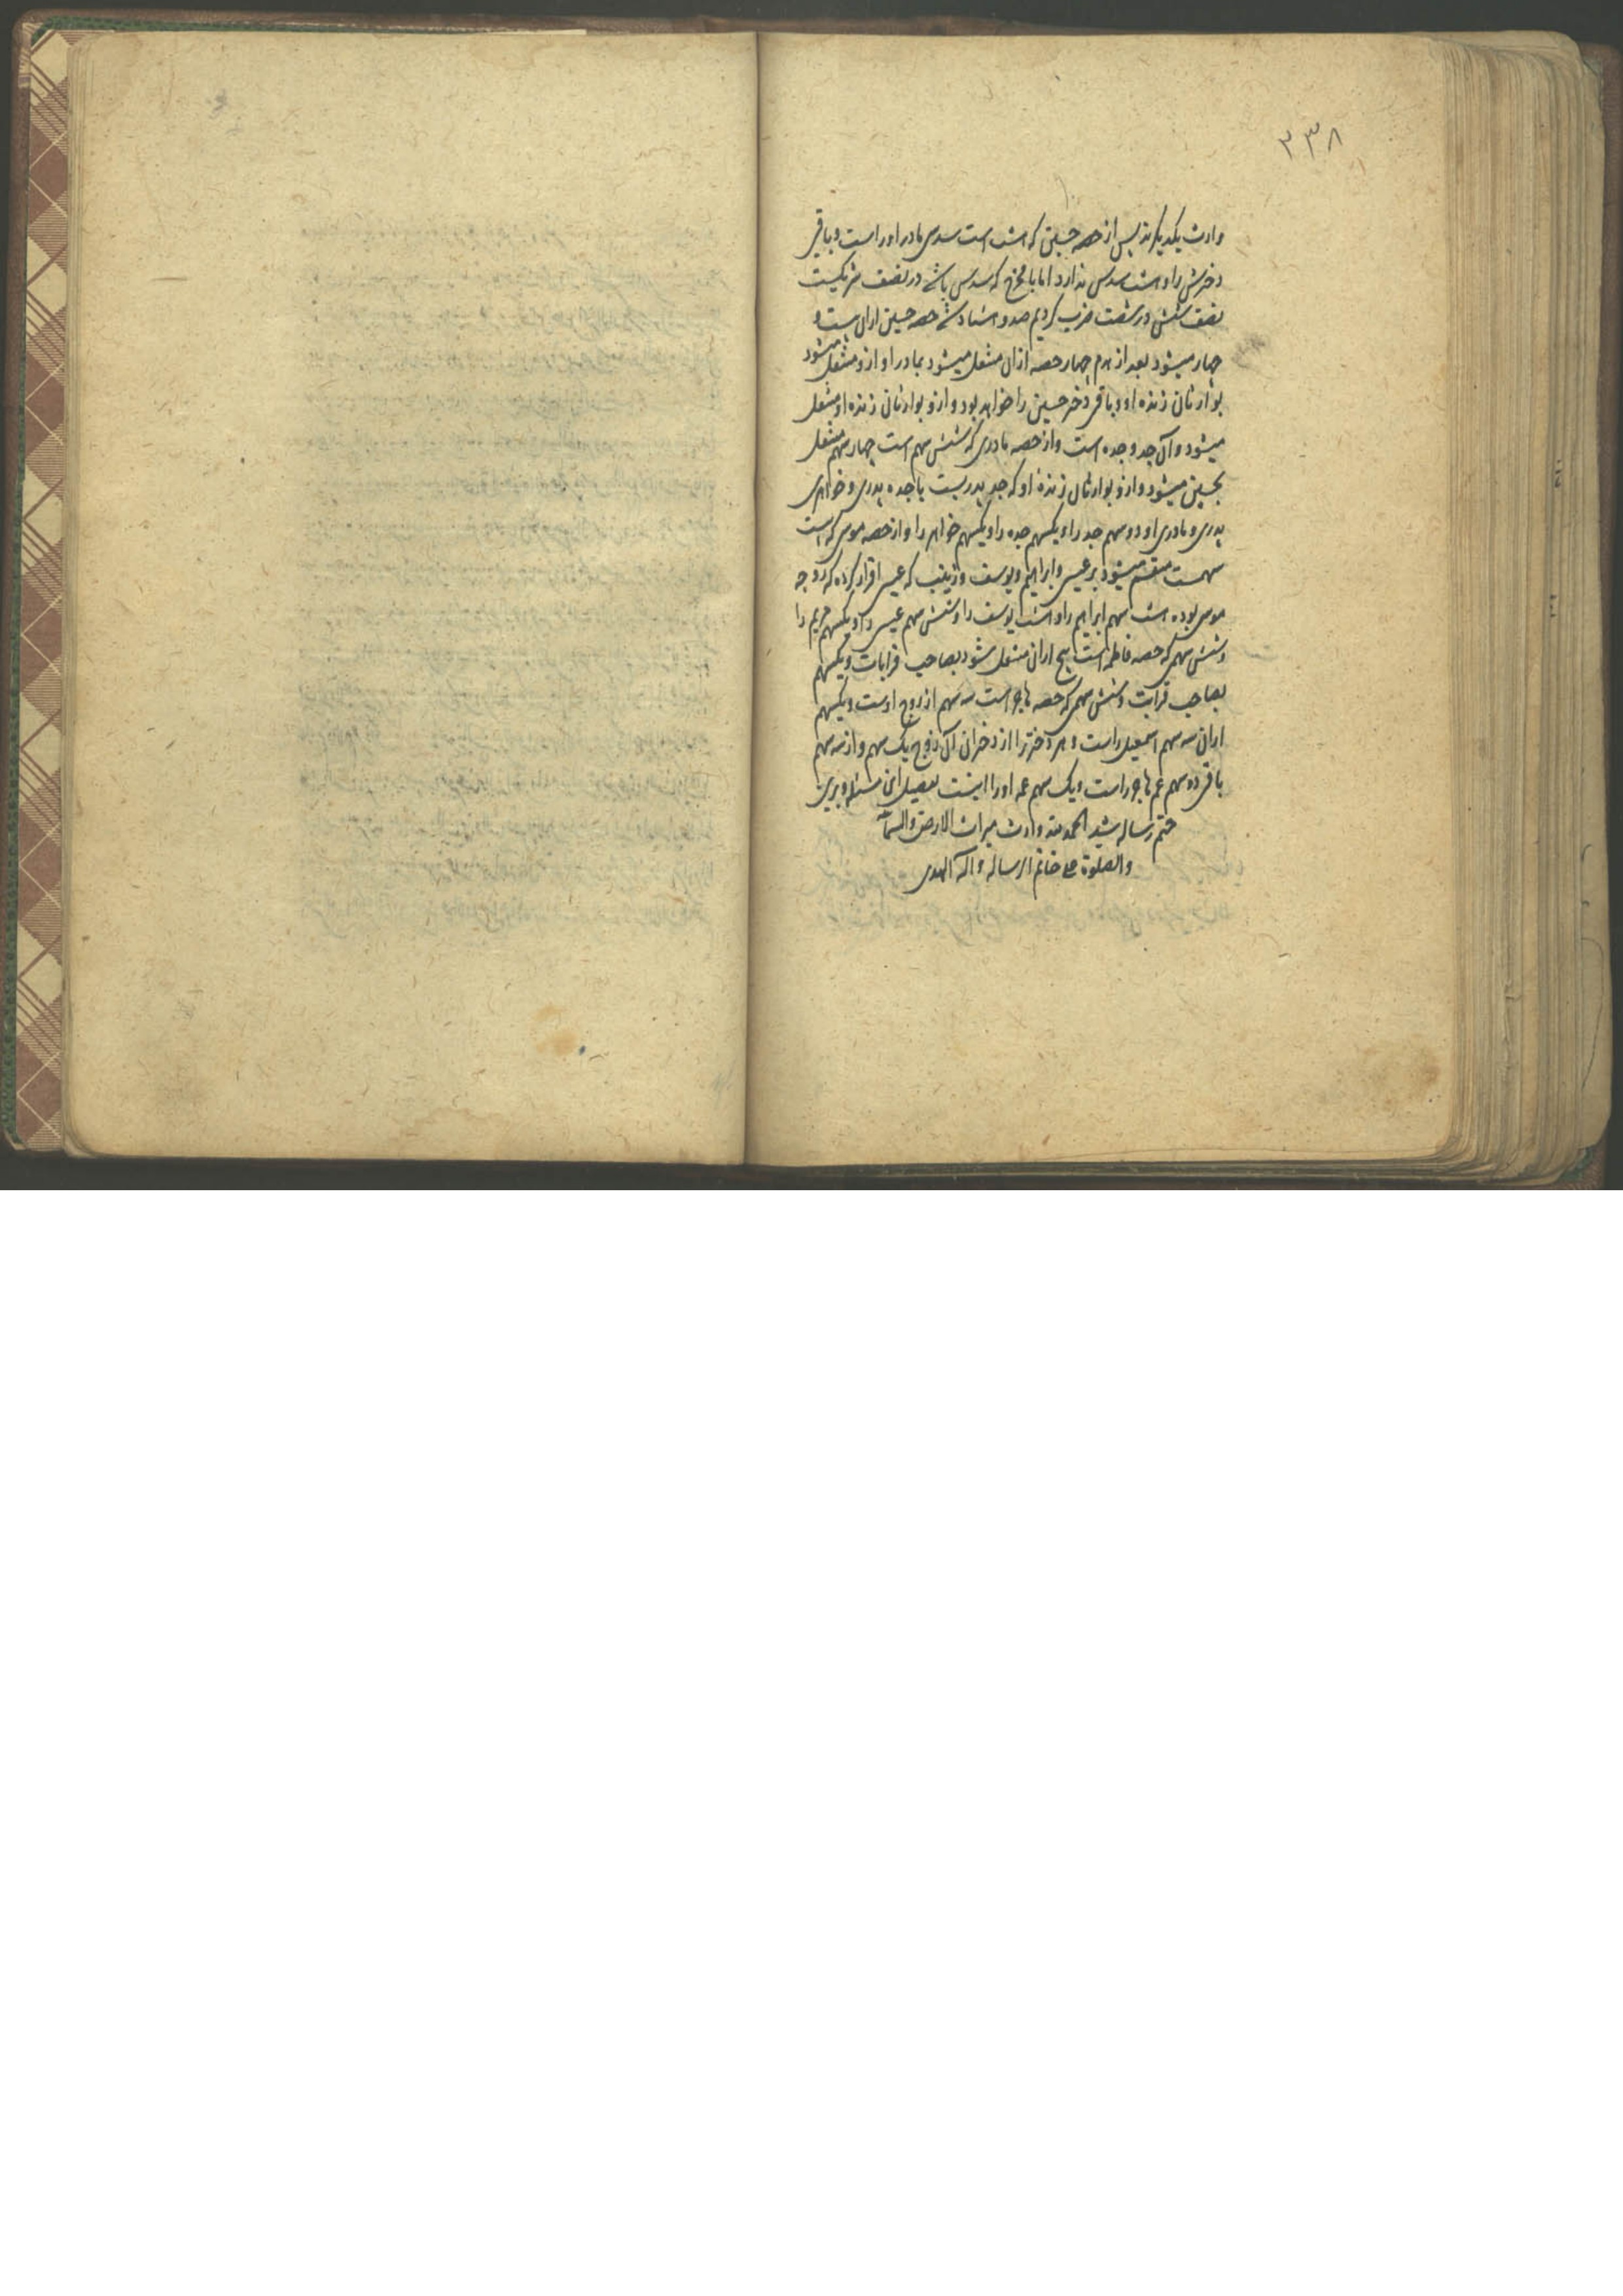 ۲۳۸
وارث یکدیگرند پس از حصه حسین که هشت است سدس مادر او راست و باقی
دخترش را و هشت سدس ندارد اما با مخرج که سدس باشد در نصف شریکست
نصف شش در شصت ضرب کردیم صد و هشتاد شد حصه حسین ازان بیست و
چهار میشود بعد از هدم چهار حصه ازان منتقل میشود بمادر او و ازو منتقل میشود
بوارثان زنده او و باقی دختر حسین را خواهد بود و ازو بوارثان زنده او منتقل
میشود و آن جد و جده است و از حصه مادری که شش سهم است چهار سهم منتقل
بحسین میشود و ازو بوارثان زنده او که جد پدریست یا جده پدری و خواهری
پدری و مادری او دو سهم جد را و یکسهم جده را و یکسهم خواهر را و از حصه موسی که است
سهمست منقسم میشود بر عیسی و ابراهیم و یوسف و زینب که عیسی اقرار کرده که زوجه
موسی بوده هشت سهم ابراهیم را و هشت یوسف را و شش سهم عیسی را و یکسهم مریم را
و شش سهمی که حصه فاطمه است پنج ازان منتقل شود بصاحب قرابات و یکسهم
بصاحب قرابت و شش سهمی که حصه هاجر است سه سهم از زوج اوست و یکسهم
ازان سه سهم اسمعیل راست و هر دختر را از دختران آن زوج یک سهم و از سه سهم
باقی دو سهم عم هاجر راست و یک سهم عمه او را اینست تفصیل این مسئله و برین
ختم رساله شد الحمد لله وارث میراث الارض و السماء
والصلوة علی خاتم الرساله و آله الهدی